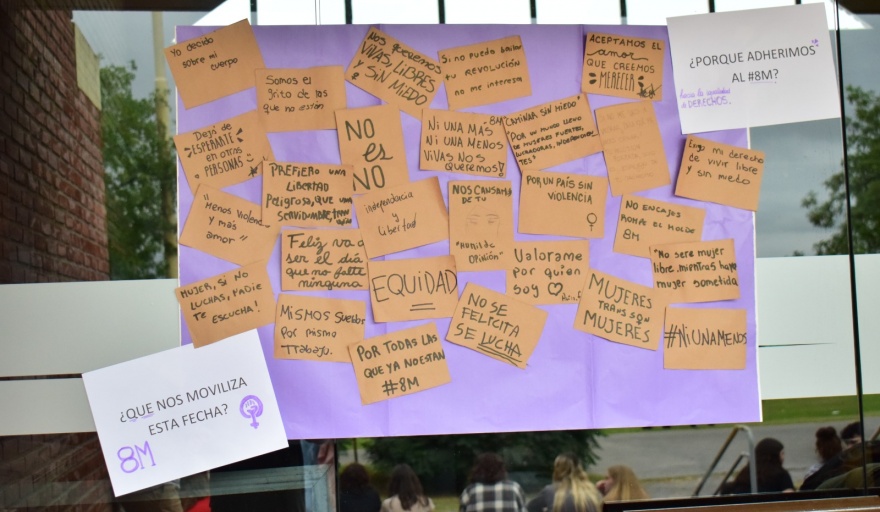 Yo decido
sobre mi
cuerpo
Somos el
grito de las
que no están
Nos queremos
VIVAS, LIBRES
y SIN
MIEDO
Si no puedo bailar
tu REVOLUCIÓN
no me interesa
ACEPTAMOS EL
amor
QUE CREEMOS
MERECER
¿PORQUE ADHERIMOS
AL #8M?
hacia la igualdad
de DERECHOS.
Dejá de
ESPERARTE
en otras
PERSONAS
NO
es
NO
NI UNA MAS
NI UNA MENOS
VIVAS NOS
queremos!
8M
CAMINAR SIN MIEDO
POR UN MUNDO LLENO
DE MUJERES FUERTES,
LUCHADORAS, INDEPENDIEN
TES"
Tengo mi derecho
de vivir libre
y sin miedo
PREFIERO una
LIBERTAD
Peligrosa, que una
SERVIDUMBRE
"Menos violencia
y más
amor"
independencia
y
Libertad
NOS CANSAMOS
DE TU
"HUMILDE
OPINIÓN"
POR UN PAÍS SIN
VIOLENCIA
NO ENCAJES
ROMPE EL MOLDE
8M
Feliz va a
ser el día
que no falte
ninguna
EQUIDAD
Valorame
por quien
soy
"No seré mujer
libre, mientras haya
mujer sometida
MUJER, SI NO
LUCHAS, NADIE
TE ESCUCHA!
MISMOS sueldos
Por mismo
Trabajo.
POR TODAS LAS
QUE YA NO ESTAN
#8M
NO SE
FELICITA
SE LUCHA
MUJERES
TRANS SON
MUJERES
#NIUNAMENOS
¿QUE NOS MOVILIZA
ESTA FECHA?
8M